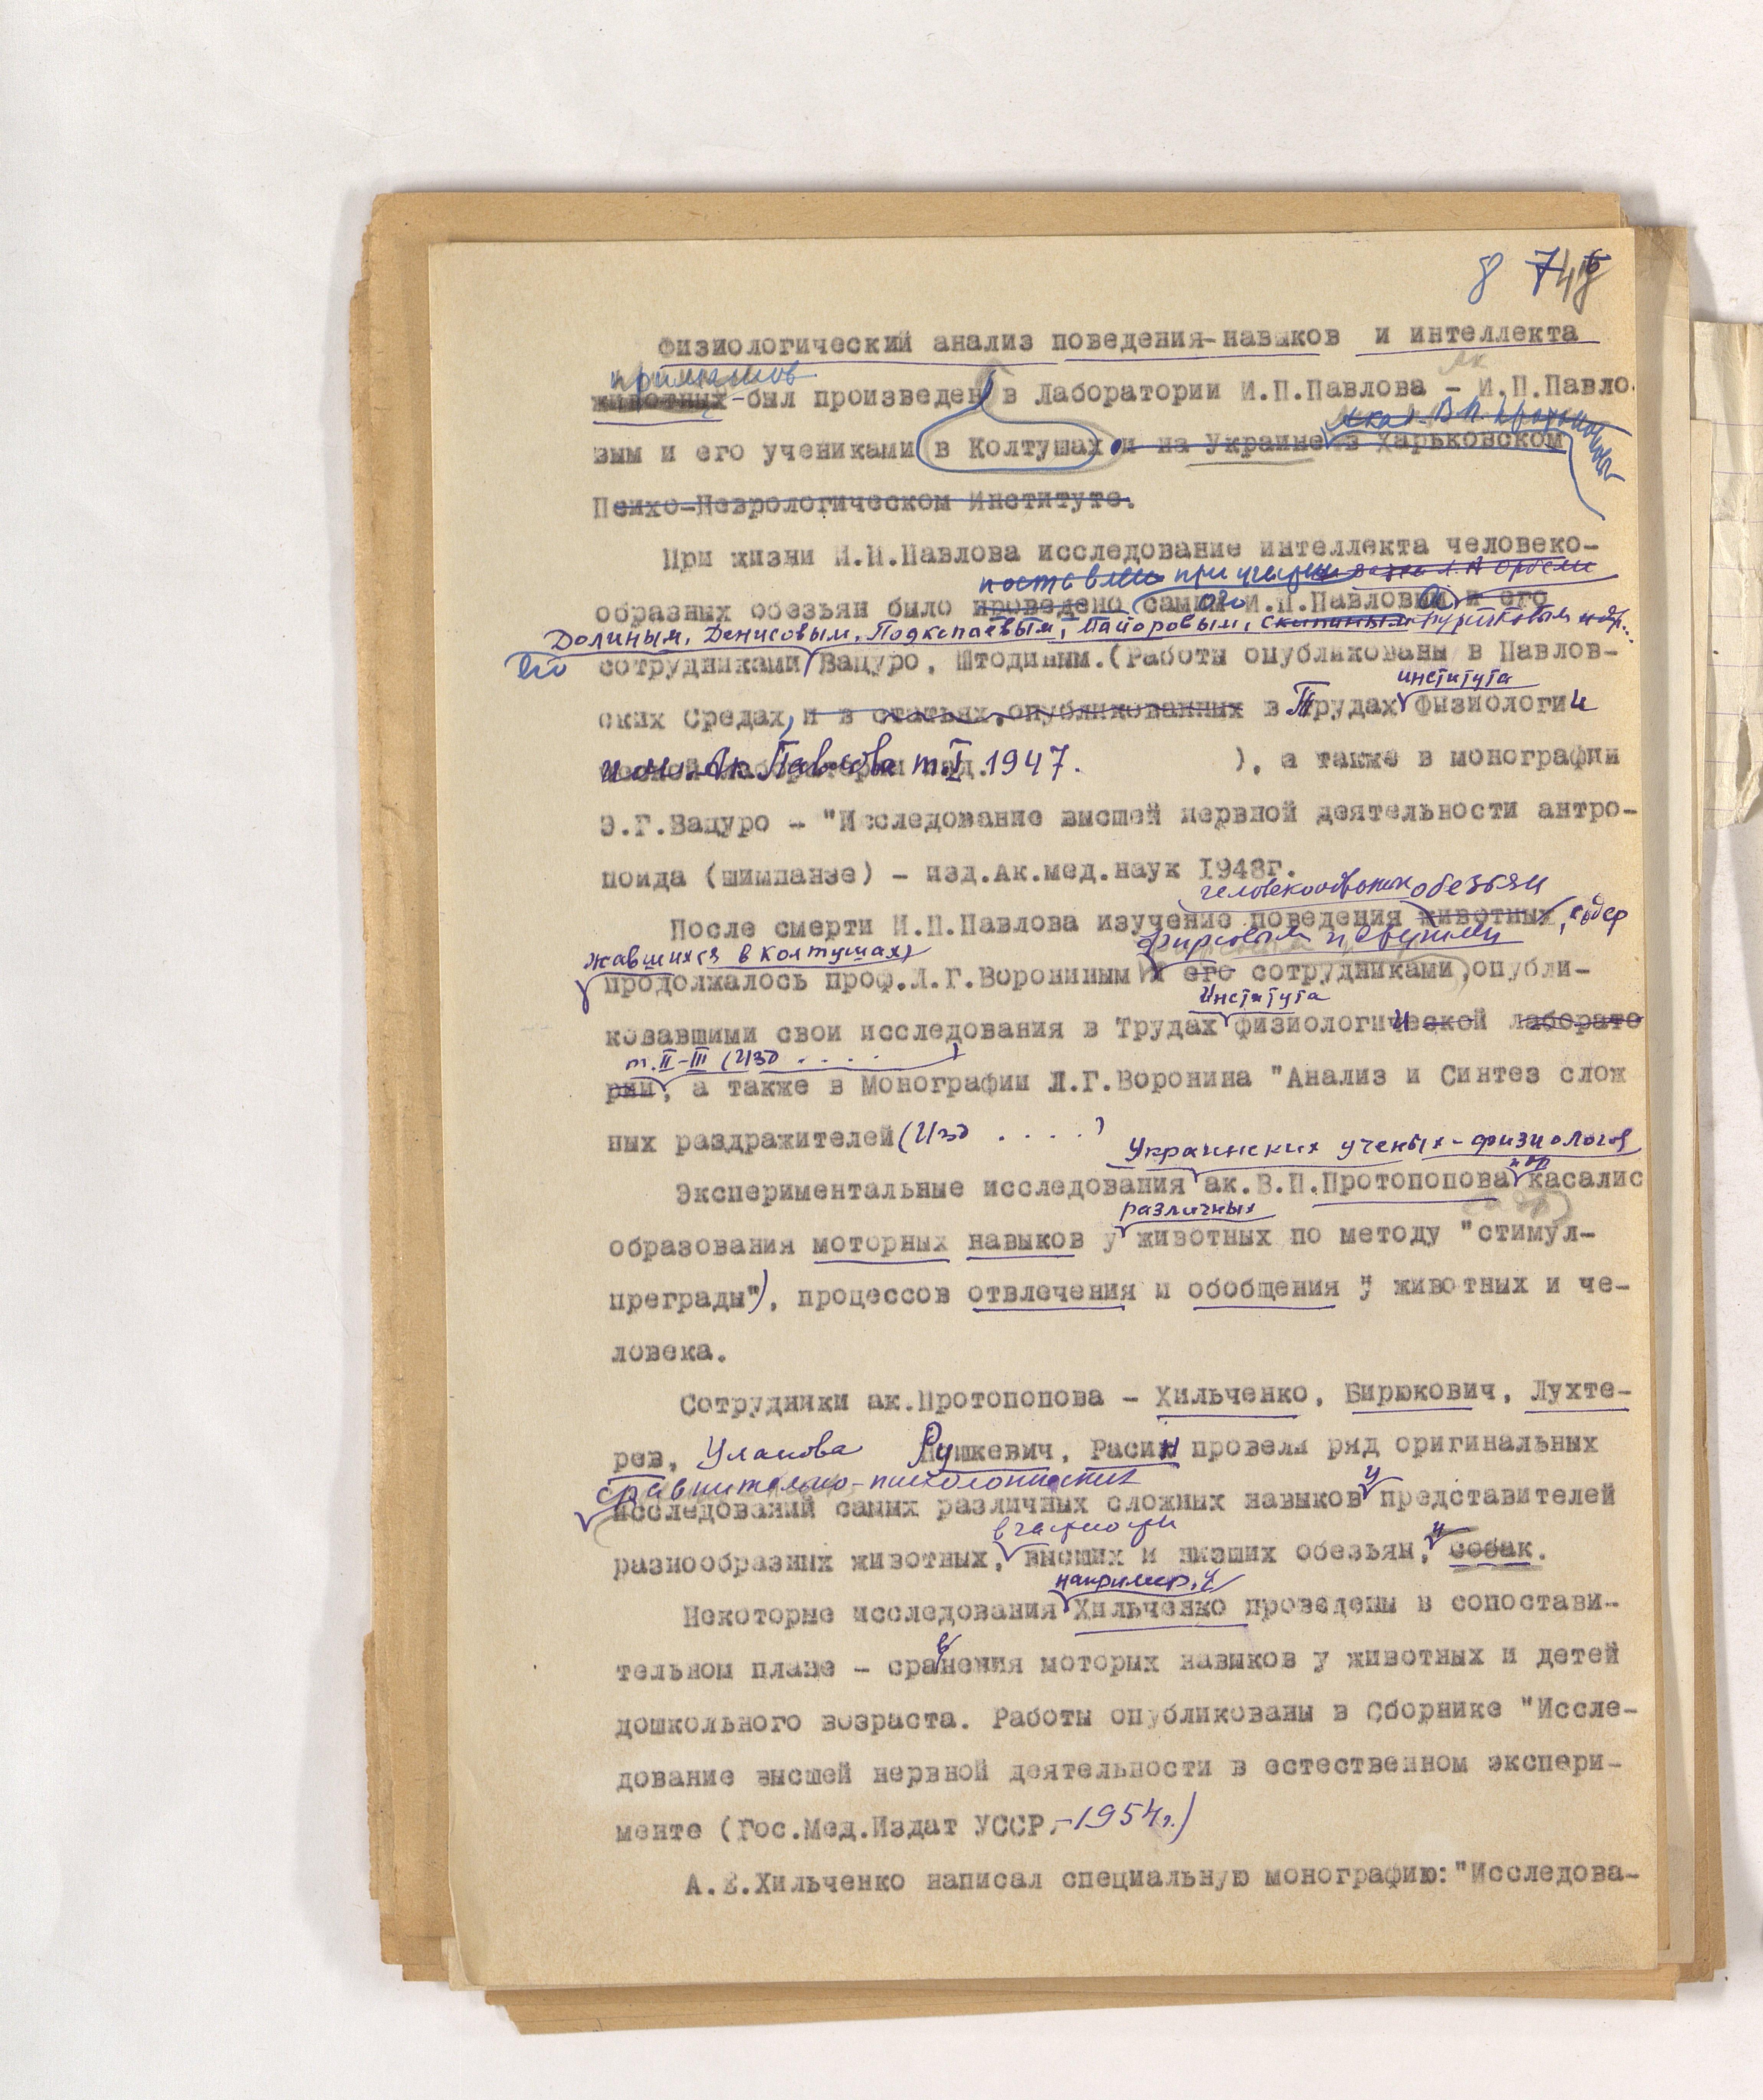 8 7
Физиологический анализ поведения-навыков и интеллекта
приматов
животных-был произведен в Лаборатории И.П.Павлова - И.П.Павло
вым и его учениками в Колтушах и на Украине в Харьковском
Психо-Неврологическом Институте.
При жизни И.П.Павлова исследование интеллекта человеко-
при участии
образных обезьян было проведено самим И.П.Павловым и его
Долиным, Денисовым, Подкопаевым, Майоровым,
его сотрудниками Вацуро, Штодиным.(Работы опубликованы в Павлов-
института
ских Средах, и в статьях, опубликованных в Трудах физиологии
им. Ак. Павлова т.I 1947. ), а также в монографии
Э.Г.Вацуро - "Исследование высшей нервной деятельности антро-
поида (шимпанзе) - изд.Ак.мед.наук 1948г.
человекообразных обезьян
После смерти И.П.Павлова изучение поведения животных, содер
жавшихся в Колтушах,
продолжалось проф.Л.Г.Ворониным и его сотрудниками, опубли-
Института
ковавшими свои исследования в Трудах физиологической лаборато
т. II-III (Изд . . . . )
рии, а также в Монографии Л.Г.Воронина "Анализ и Синтез слож
ных раздражителей (Изд . . . . )
Украинских ученых-физиологов
и др
Экспериментальные исследования ак.В.П.Протопопова касалис
различных
образования моторных навыков у животных по методу "стимул-
преграды"), процессов отвлечения и обобщения у животных и че-
ловека.
Сотрудники ак.Протопопова - Хильченко, Бирюкович, Лухте-
рев, Уланова Рушкевич, Расин провели ряд оригинальных
сравнительно-психологических
исследований самых различных сложных навыков у представителей
в частности
разнообразных животных, высших и низших обезьян, и собак.
например, у
Некоторые исследования Хильченко проведены в сопостави-
тельном плане - сравнения моторых навыков у животных и детей
дошкольного возраста. Работы опубликованы в Сборнике "Иссле-
дование высшей нервной деятельности в естественном экспери-
менте (Гос.Мед.Издат УССР,-1954г.)
А.Е.Хильченко написал специальную монографию:"Исследова-